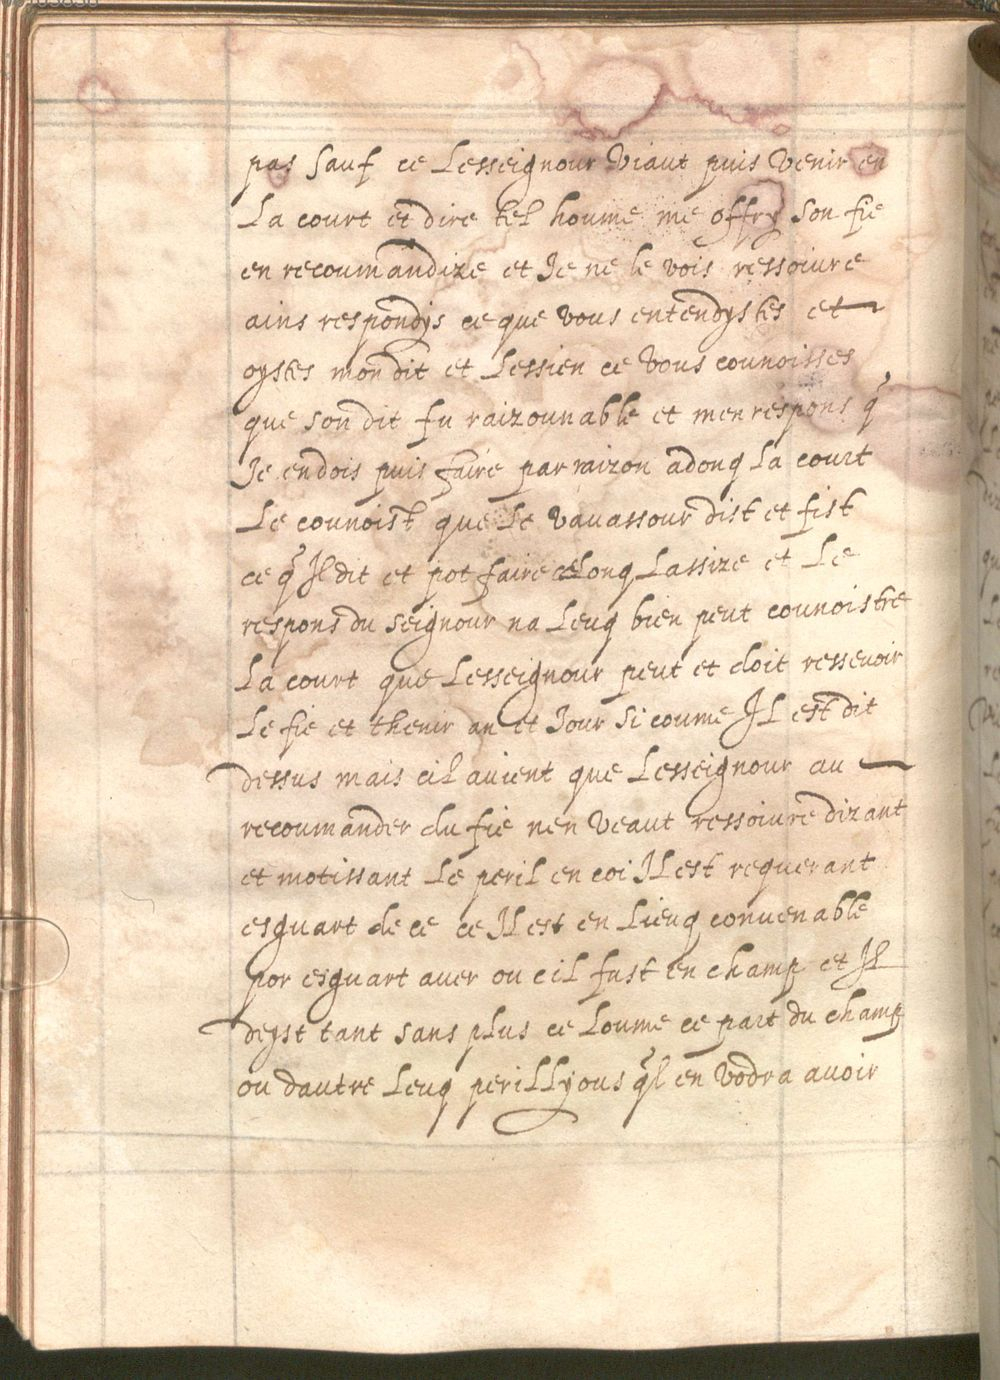 pas sauf ce Lesseignour Viaut puis Venir en
La court et dire tel houme me offry son fie
en recoumandize et Je ne le vois ressoivre
ains respondys ce que vous entendystes et
oystes mon dit et Lessien ce Vous counoisses
que son dit fu raizounable et men respons q̃
Je en dois puis faire par raizon adonq La court
Le counoist que Le Vauassour dist et fist
ce q̃ Jl dit et pot faire celonq Lassize et Le
respons du seignour na Leuq bien peut counoistre
La court que Lesseignour peut et doit ressevoir
Le fie et thenir an et Jour si coume JL est dit
dessus mais cil auient que Lesseignour au
recoumander du fie nen Veaut ressoiure dizant
et motissant Le peril en coi JL est requerant
esguart de ce ce JL est en Lieuq conuenable
por esguart auer ou cil fust en champ et Jl
deyst tant sans plus ce Loume ce part du champ
ou dautre Leuq perillyous q̃l en Vodra auoir